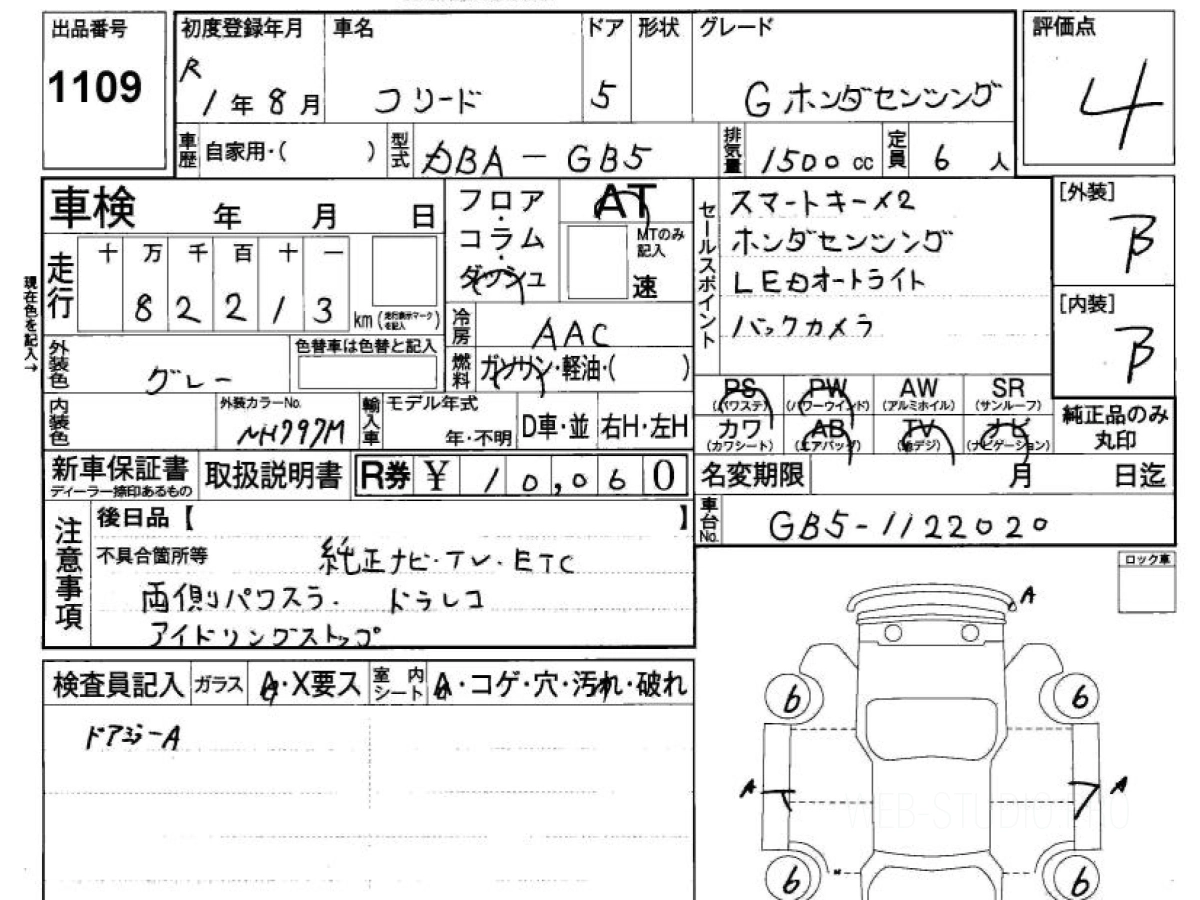 出品番号
1109
初度登録年月
R 1年 8月
車名
フリード
ドア
5
形状
グレード
G ホンダセンシング
評価点
4
車歴
自家用・( )
型式
DBA - GB5
排気量
1500 cc
定員
6 人
車検 年 月 日
フロア・
コラム・
ダッシュ
AT
MTのみ
記入
速
セールスポイント
スマートキー×2
ホンダセンシング
LEDオートライト
バックカメラ
[外装]
B
[内装]
B
現在色を記入→
走行
十 万 千 百 十 一
8 2 2 1 3
km (走行表示マークを記入)
冷房
AAC
燃料
ガソリン・軽油・( )
外装色
グレー
色替車は色替と記入
内装色
外装カラーNo.
NH797M
輸入車
モデル年式
年・不明
D車・並
右H・左H
PS
(パワステ)
PW
(パワーウインド)
AW
(アルミホイル)
SR
(サンルーフ)
カワ
(カワシート)
AB
(エアバッグ)
TV
(地デジ)
ナビ
(ナビゲーション)
純正品のみ
丸印
新車保証書
ディーラー捺印あるもの
取扱説明書
R券 ¥ 10,060
名変期限 月 日迄
車台No.
GB5-1122020
注意事項
後日品【 】
不具合箇所等
純正ナビ・TV・ETC
両側パワスラ・ ドラレコ
アイドリングストップ
ロック車
A
検査員記入
ガラス
A・X要ス
室内シート
A・コゲ・穴・汚れ・破れ
ドアミラーA
6
6
A
A
WEB-STUDIO.PRO
6
6